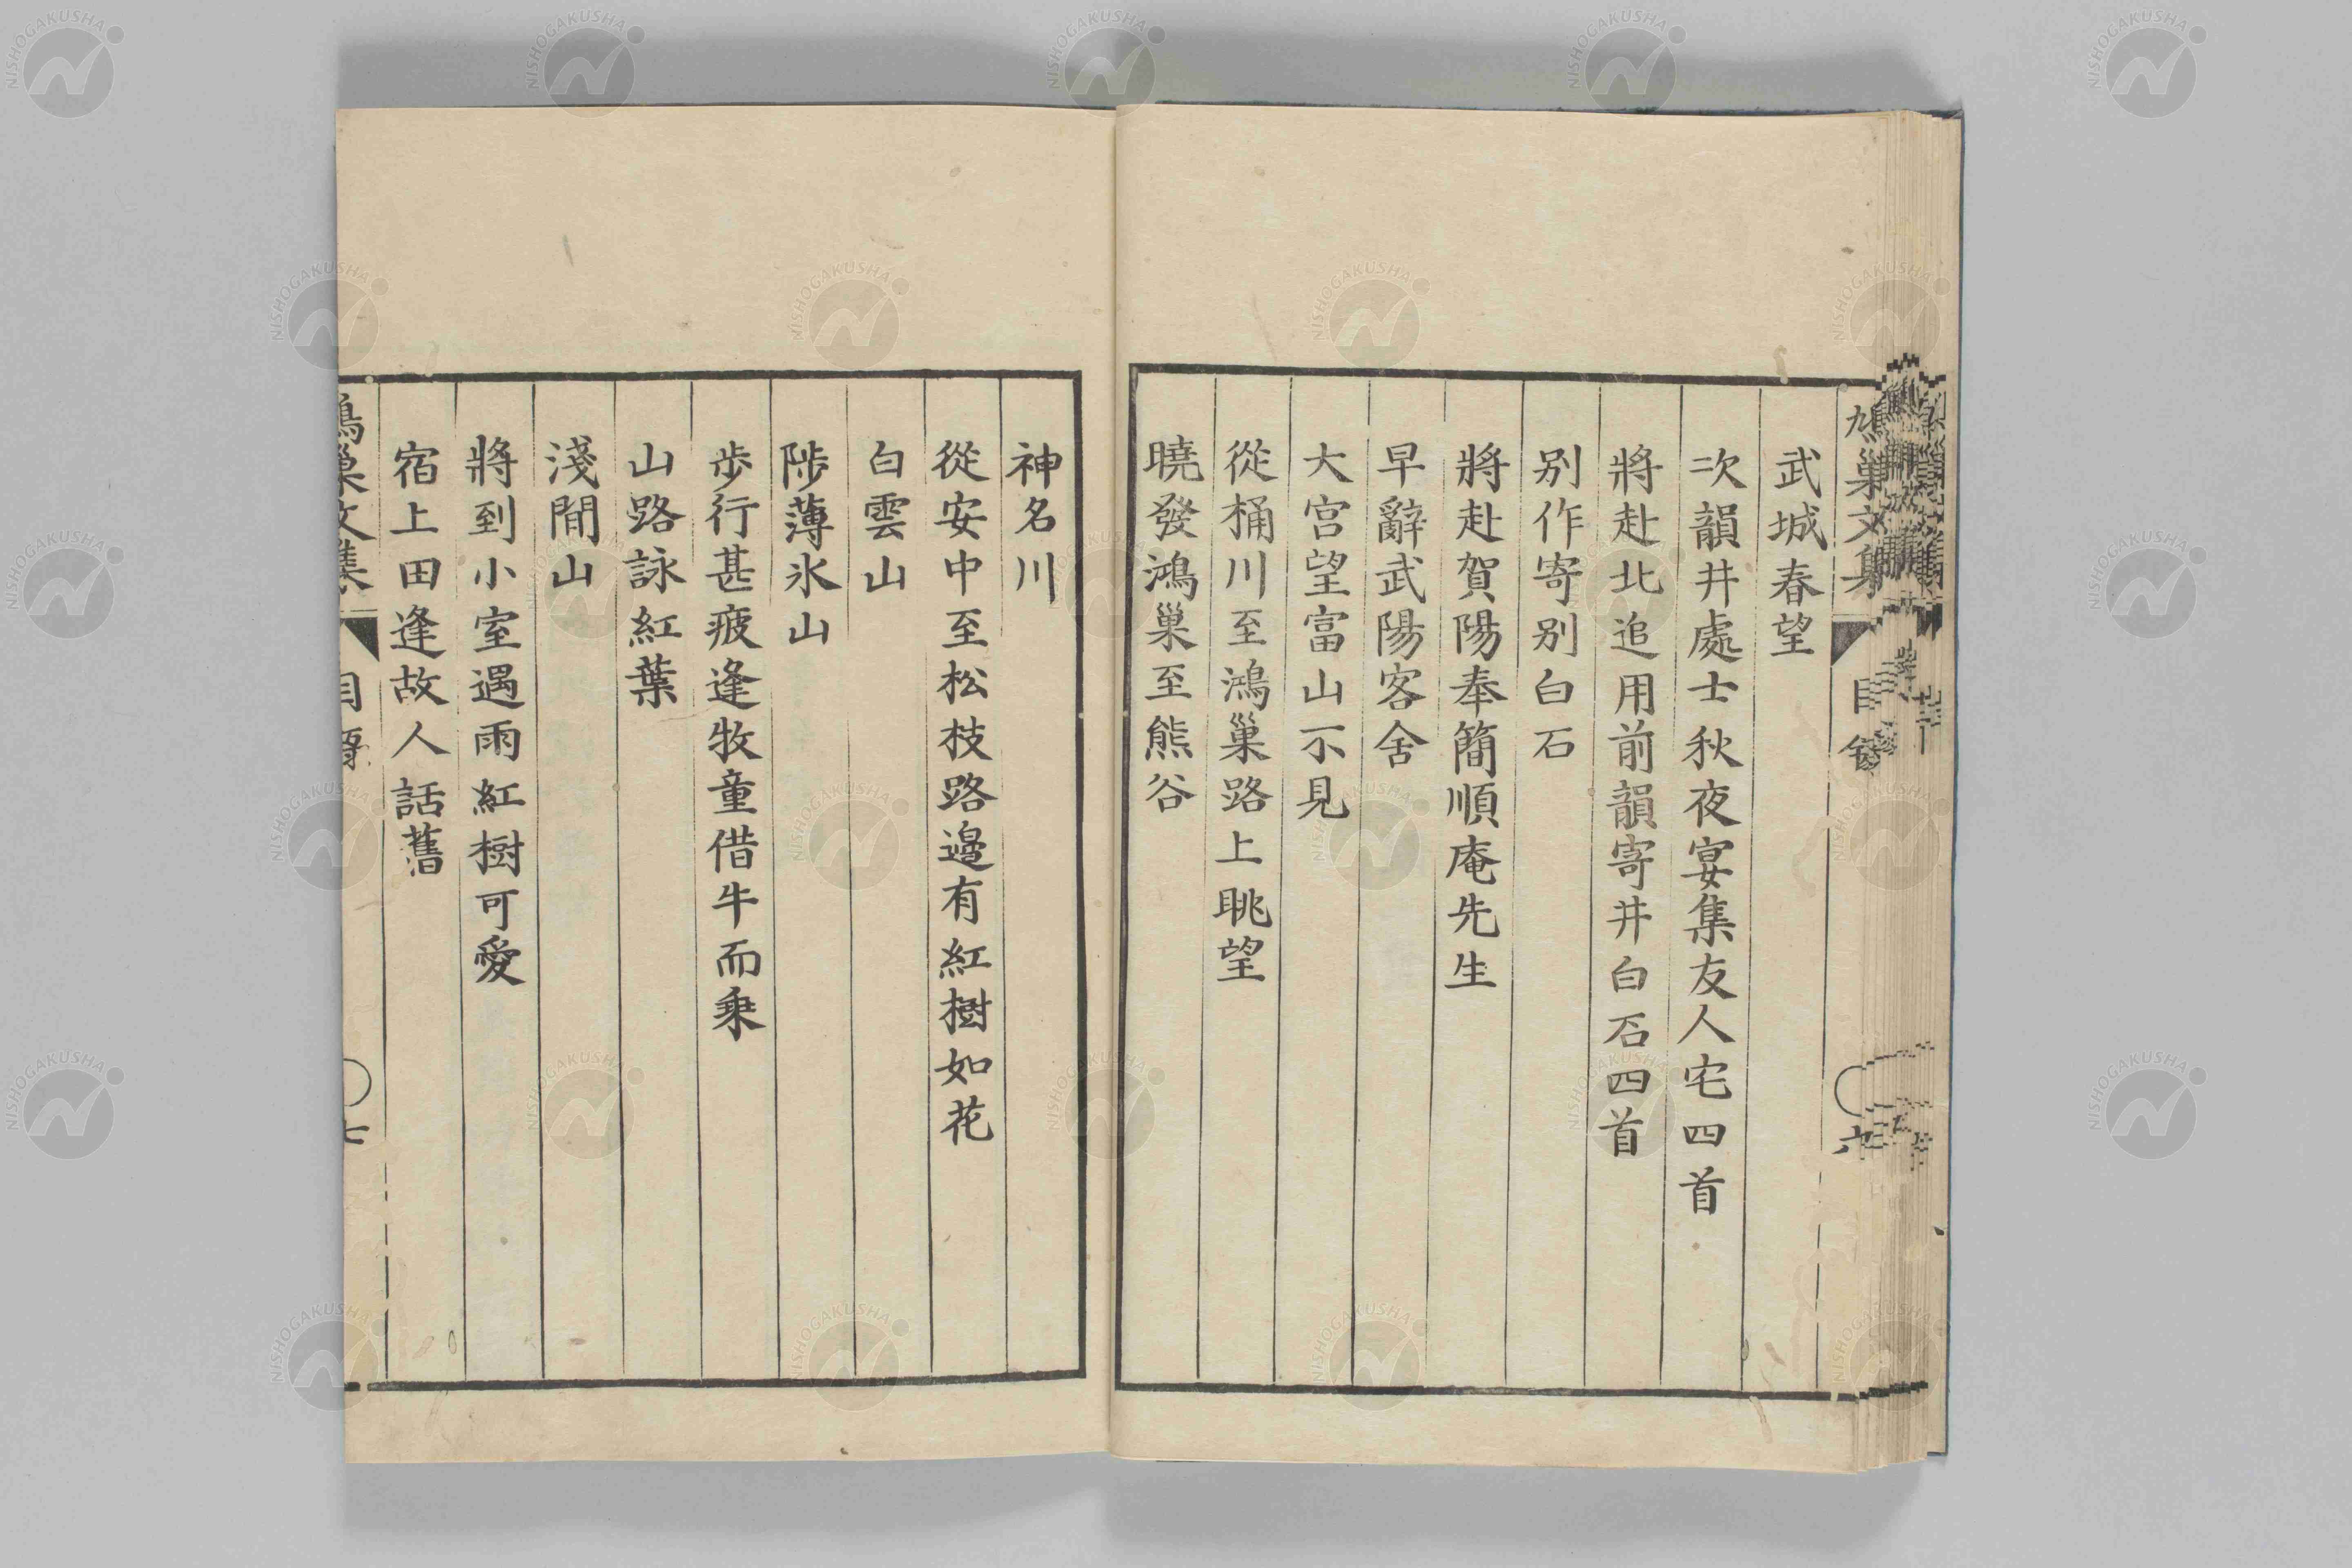 鳩巢文集
目錄
六
武城春望
次韻井處士秋夜宴集友人宅四首
將赴北追用前韻寄井白石四首
別作寄別白石
將赴賀陽奉簡順庵先生
早辭武陽客舍
大宮望富山不見
從桶川至鴻巢路上眺望
曉發鴻巢至熊谷
神名川
從安中至松枝路邊有紅樹如花
白雲山
陟薄氷山
步行甚疲逢牧童借牛而乘
山路詠紅葉
淺間山
將到小室遇雨紅樹可愛
宿上田逢故人話舊
鳩巢文集
目錄
七
NISHOGAKUSHA